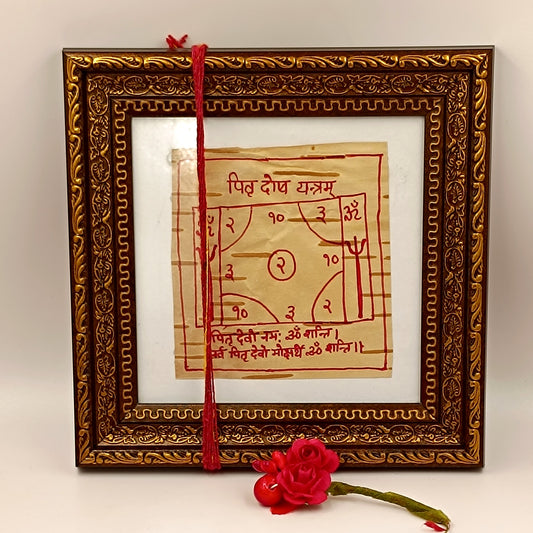 पितृ दोष यन्त्रम्
ॐ २ १० ३ ॐ
३ २ १०
१० ३ २
पितृ देवो नमः ॐ शान्ति।
सर्व पितृ देवो मोक्षार्थे ॐ शान्ति॥